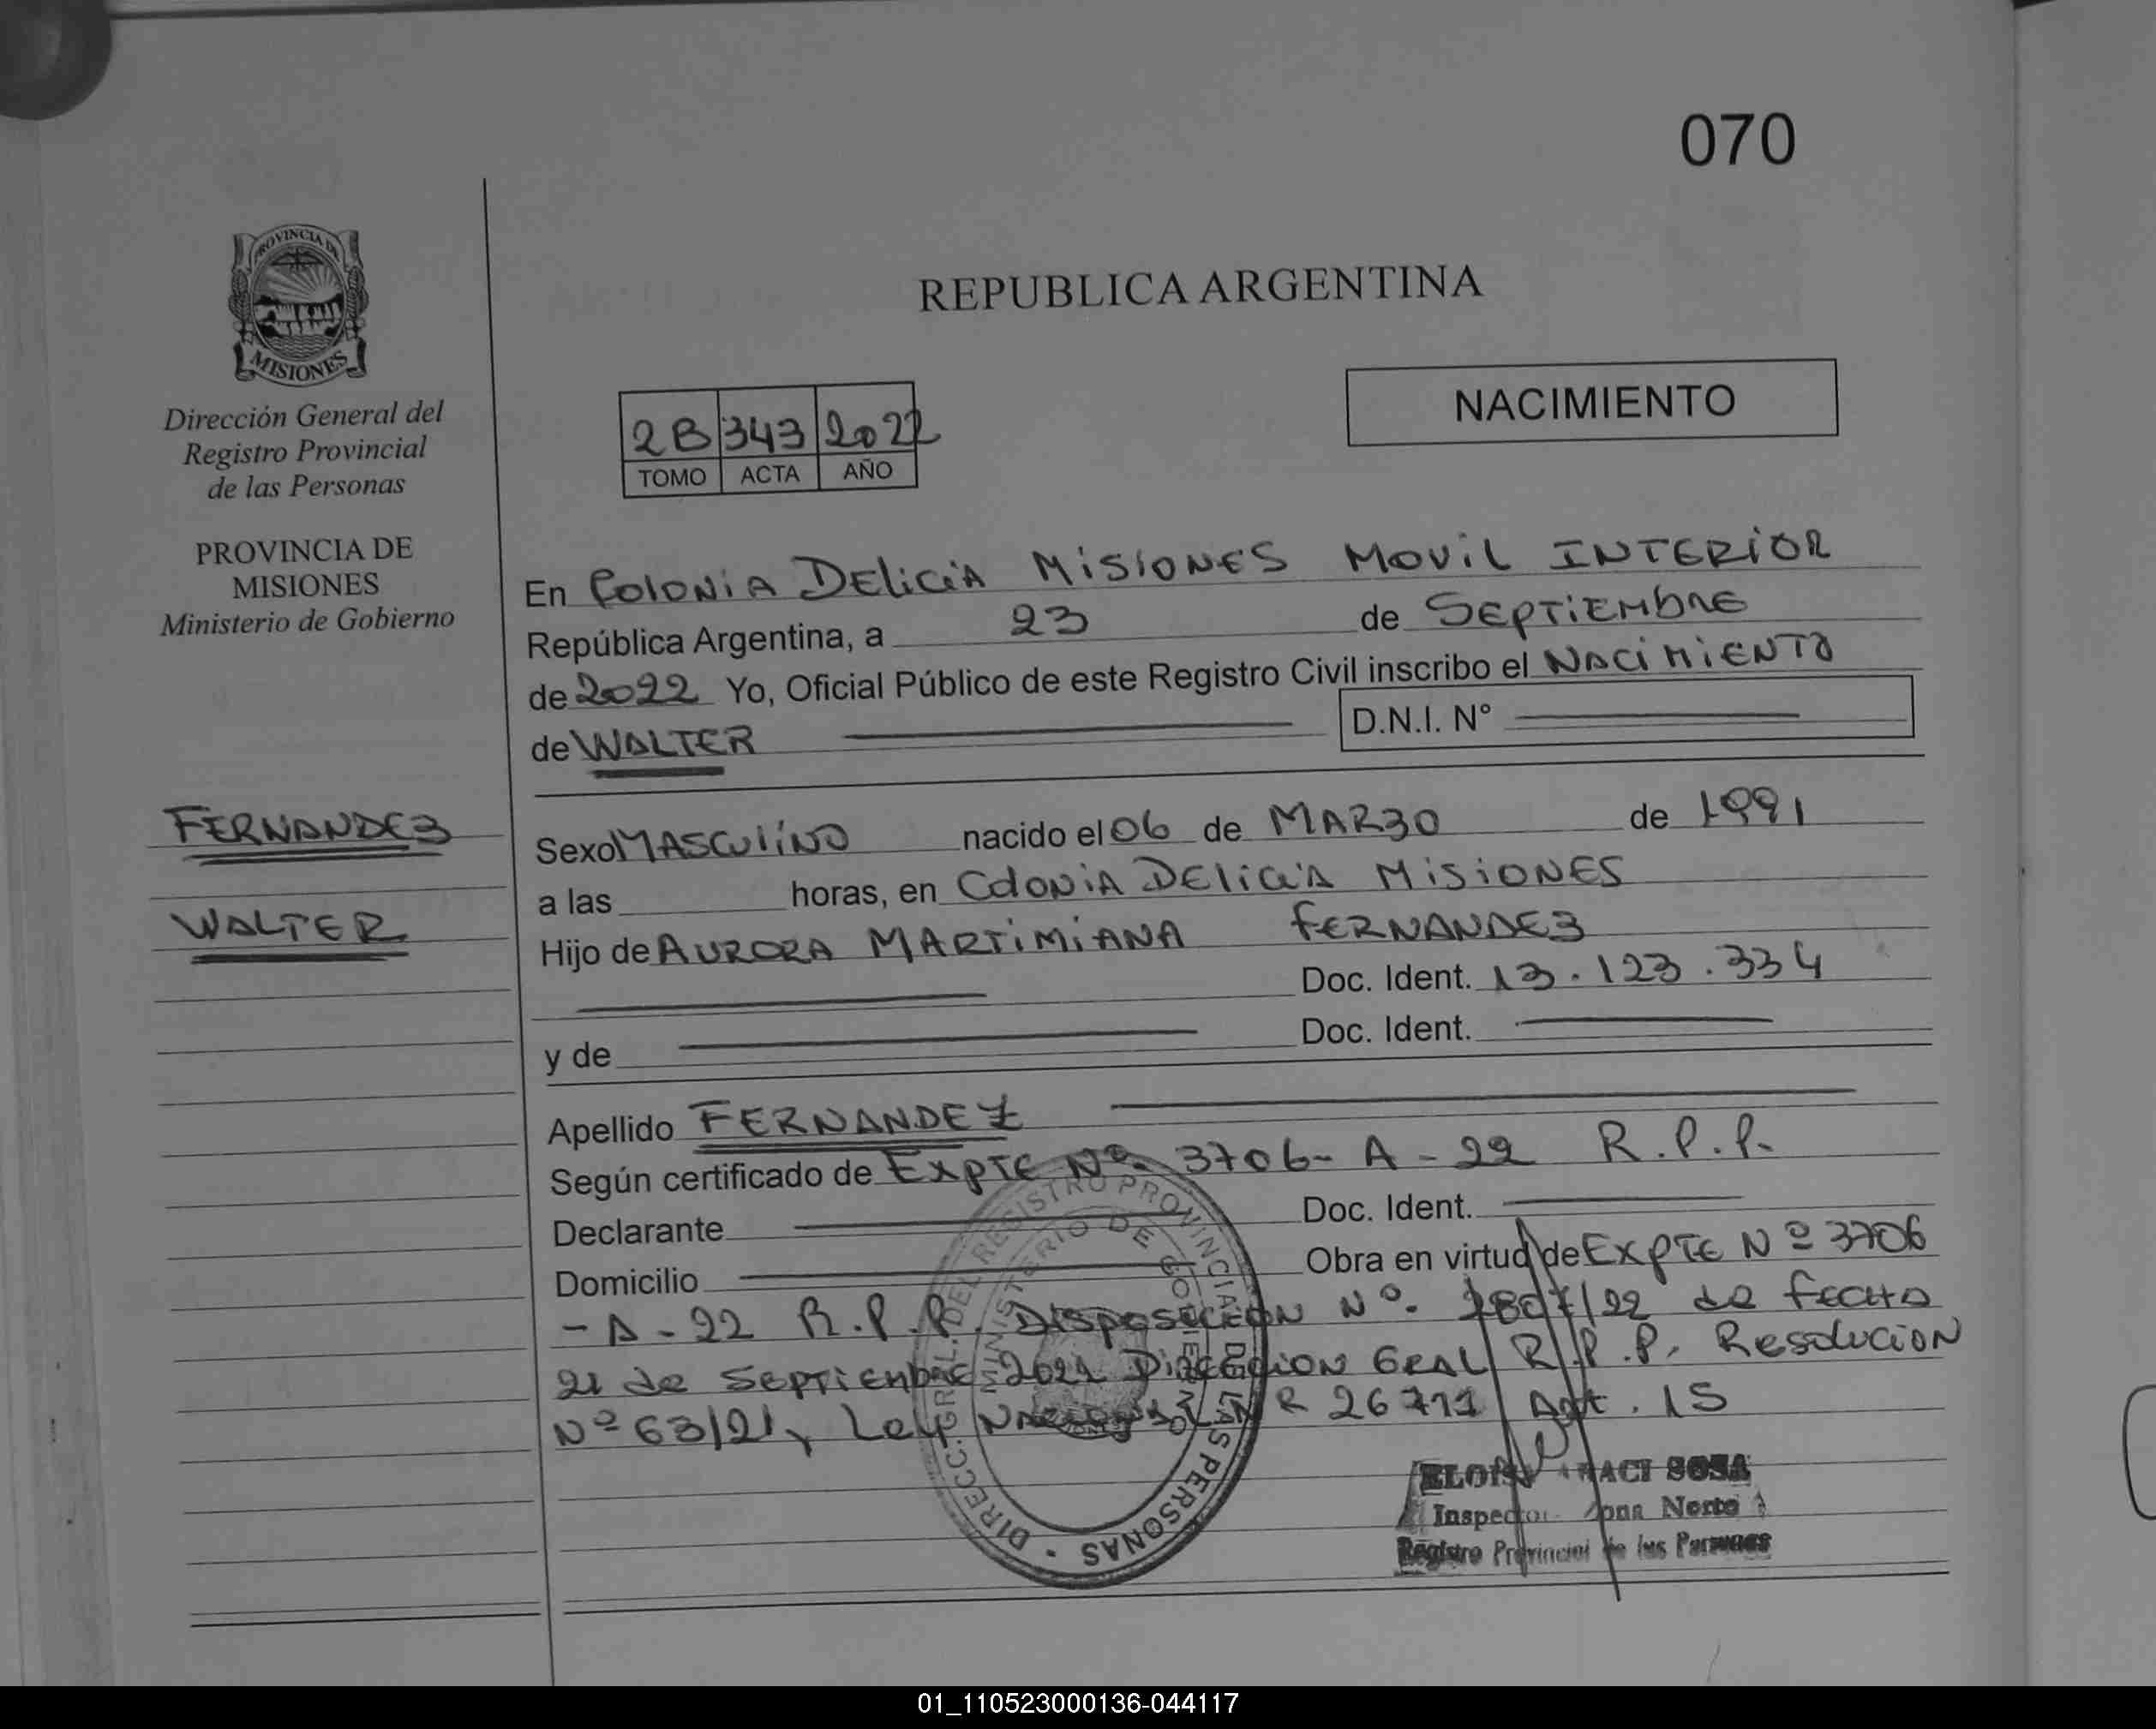 070
PROVINCIA DE
MISIONES
Dirección General del
Registro Provincial
de las Personas
PROVINCIA DE
MISIONES
Ministerio de Gobierno
FERNANDEZ
WALTER
REPUBLICA ARGENTINA
NACIMIENTO
2B 343 2022
TOMO ACTA AÑO
En Colonia Delicia Misiones Movil INTERIOR
República Argentina, a 23 de Septiembre
de 2022 Yo, Oficial Público de este Registro Civil inscribo el Nacimiento
de WALTER D.N.I. N°
Sexo MASCULINO nacido el 06 de MARZO de 1991
a las horas, en Colonia Delicia Misiones
Hijo de AURORA MARTIMIANA FERNANDEZ
Doc. Ident. 13.123.334
y de Doc. Ident.
Apellido FERNANDEZ
Según certificado de Expte Nº 3706-A-22 R.P.P.
Declarante Doc. Ident.
Domicilio Obra en virtud de Expte Nº 3706
-A-22 R.P.P. Disposicion Nº. /22 de fecha
21 de Septiembre Direccion Gral R.P.P. Resolucion
Nº 63/21, Ley Nacional 26711 Art. 15
DIRECC. GRAL. DEL REGISTRO PROVINCIAL DE LAS PERSONAS
MINISTERIO DE GOBIERNO
SOSA
Inspector Zona Norte
Registro Provincial de las Personas
01_110523000136-044117